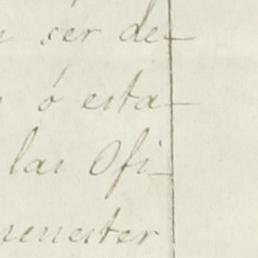 ser de-
ó esta-
las Ofi-
menester